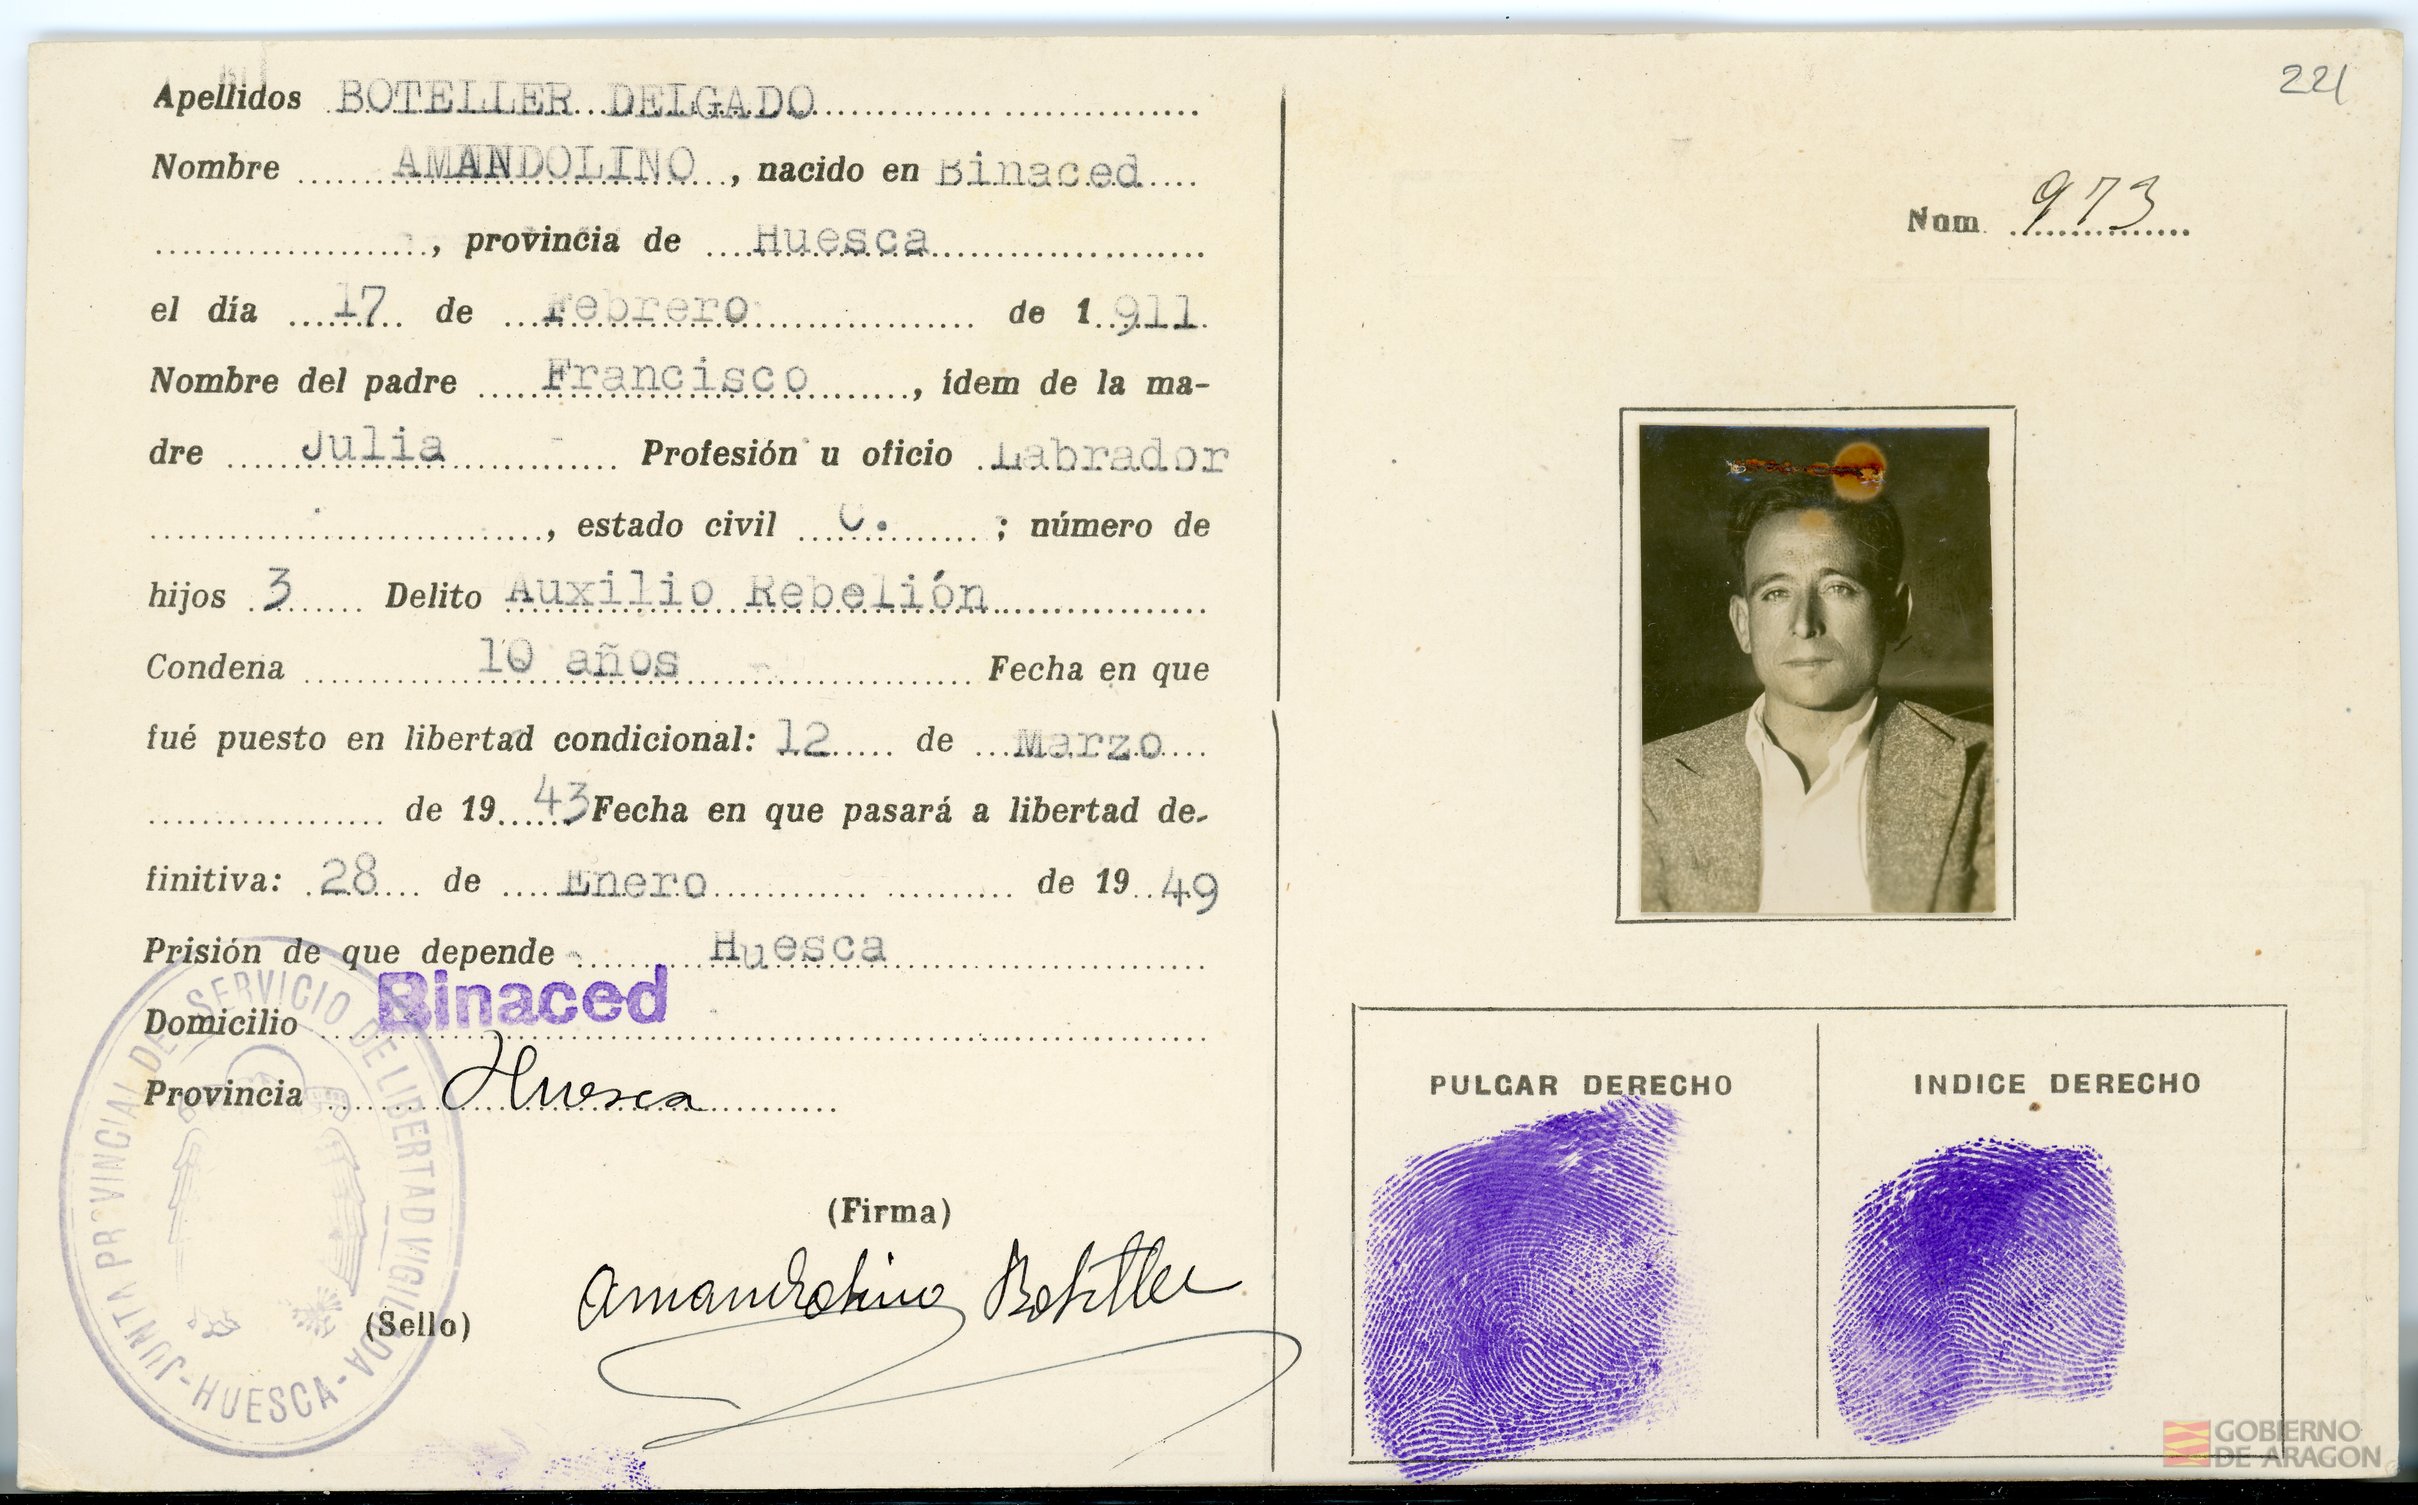 221
Apellidos BOTELLER DELGADO
Nombre AMANDOLINO, nacido en Binaced
, provincia de Huesca
el día 17 de Febrero de 1911
Nombre del padre Francisco, idem de la ma-
dre Julia Profesión u oficio Labrador
, estado civil C. ; número de
hijos 3 Delito Auxilio Rebelión
Condena 10 años Fecha en que
fué puesto en libertad condicional: 12 de Marzo
de 1943 Fecha en que pasará a libertad de-
finitiva: 28 de Enero de 1949
Prisión de que depende Huesca
Domicilio Binaced
Provincia Huesca
(Firma)
Amandolino Boteller
(Sello)
JUNTA PROVINCIAL DEL SERVICIO DE LIBERTAD VIGILADA
-HUESCA-
Num. 973
PULGAR DERECHO
INDICE DERECHO
GOBIERNO
DE ARAGON